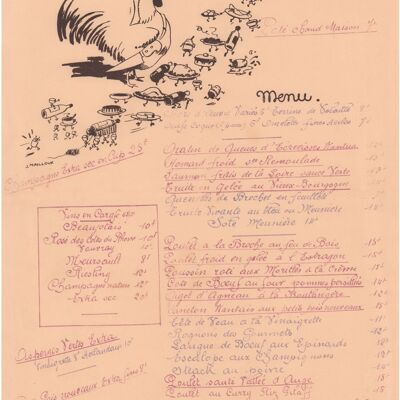 Pâté Chaud Maison 7f
Menu.
J. MAILLOUX
Champagne Extra sec en Cup 25f
Gratin de Queues d'Ecrevisses Nantua
Homard froid sce Remoulade
Saumon frais de la Loire sauce Verte
Truite en Gelée au Vieux Bourgogne
Quenelles de Brochet en feuilleté
Truite Vivante au bleu ou Meuniere
Sole Meunière 14f
Vins en Carafe
Beaujolais 10f
Rosé des côtes du Rhône 10f
Vouvray 10f
Meursault
Riesling 12f
Champagne nature 12f
Extra sec 20f
Poulet a la Broche au feu de Bois 15f
Poulet froid en gelée a l'Estragon 15f
Poussin roti aux Morilles à la Crème
Cote de Boeuf au four pommes persillées 14f
Gigot d'Agneau à la Boulangère
Caneton Nantais aux petits pois nouveaux 15f
Tête de Veau a la Vinaigrette
Rognons des Gourmets
Langue de Boeuf aux Epinards
Escalope aux Champignons
Steack au poivre
Poulet sauté Vallée d'Auge
Poulet au Curry Riz Pilaff
Asperges Vertes Extra
Vinaigrette 8f Hollandaise 10f
nouveaux Extra fins